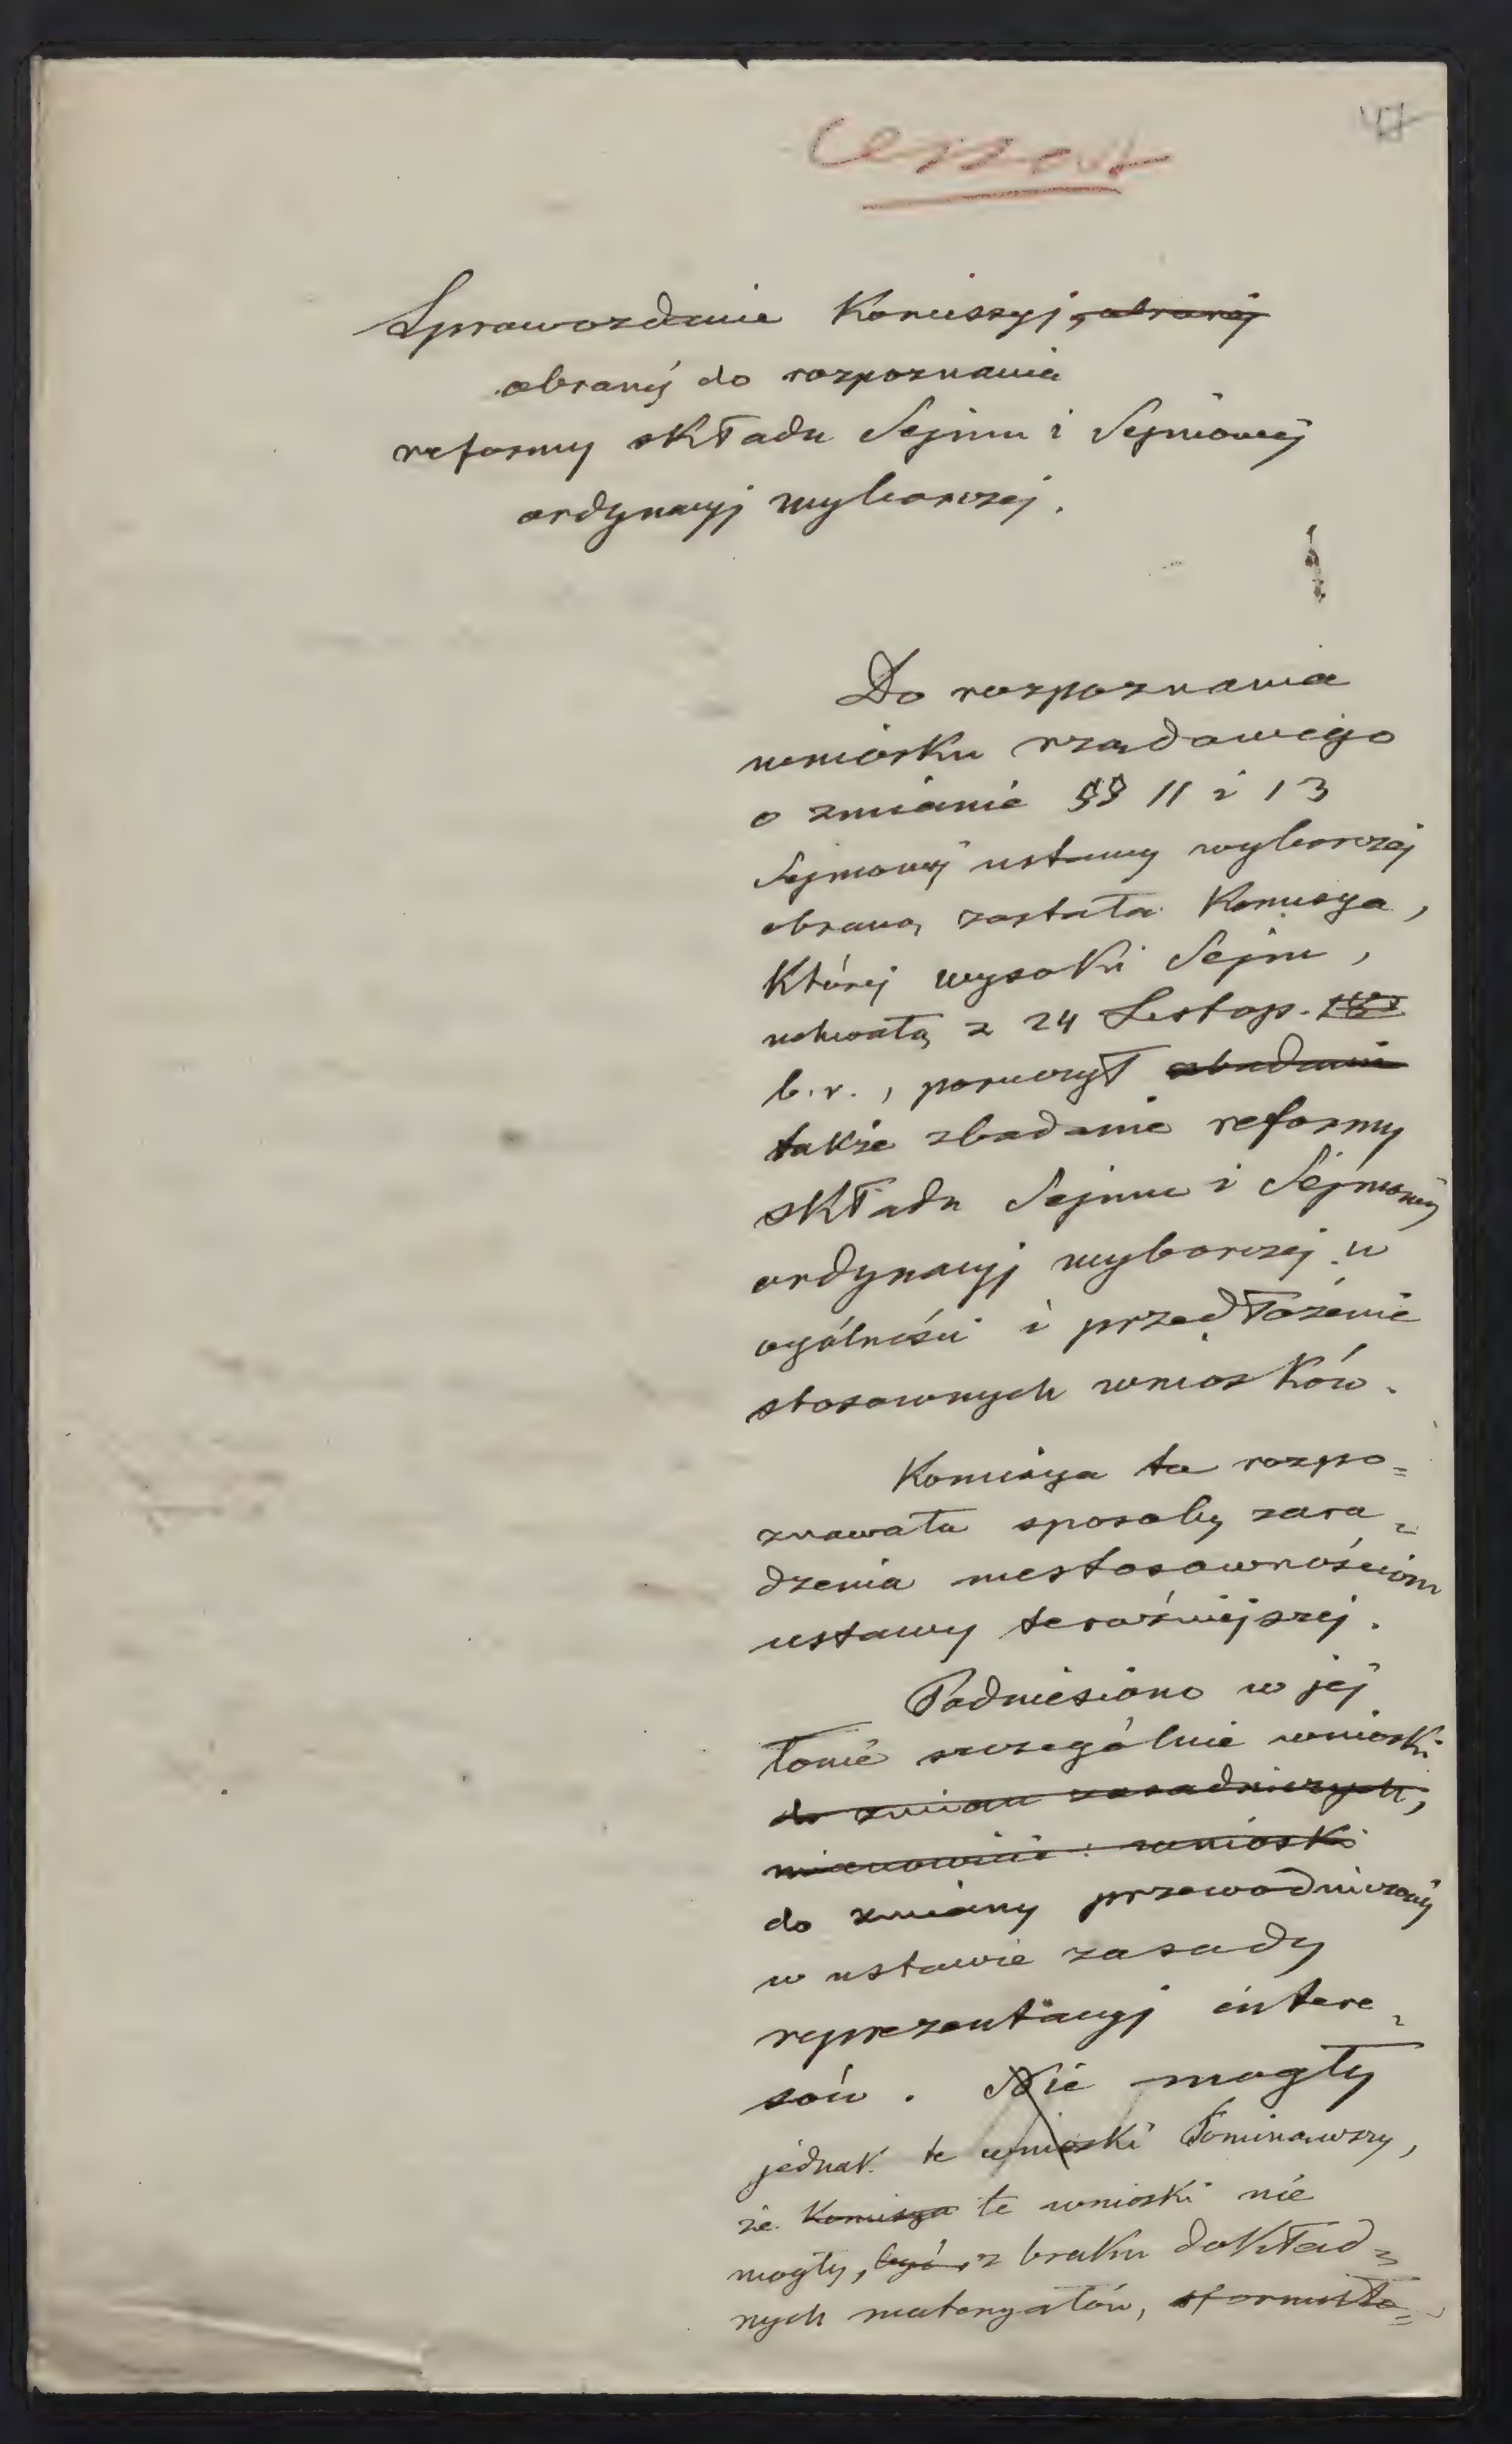 47
Sprawozdanie Komissyj, obranéj
obranéj do rozpoznania
reformy składu Sejmu i Sejmowéj
ordynacyj wyborczej.
Do rozpoznania
wniosku rządowego
o zmianie §§ 11 i 13
Sejmowéj ustawy wyborczéj
obraną została Komisya,
któréj wysoki Sejm,
uchwałą z 24 Listop.
b. r., poruczył zbadanie
także zbadanie reformy
składu Sejmu i Sejmowéj
ordynacyj wyborczej w
ogólności i przedłożenie
stosownych wniosków.
Komisya ta rozpo=
znawała sposoby zara=
dzenia niestosownościom
ustawy teraźniejszej.
Podniesiono w jéj
łonie szczególnie wnioski
do zmian zasadniczych,
mianowicie: wnioski
do zmiany przewodniczéj
w ustawie zasady
reprezentacyj intere=
sów. Nie mogły
jednak te wnioski Pominąwszy,
że Komisya te wnioski nie
mogły, być, z braku dokład=
nych materyałów, sformuło=